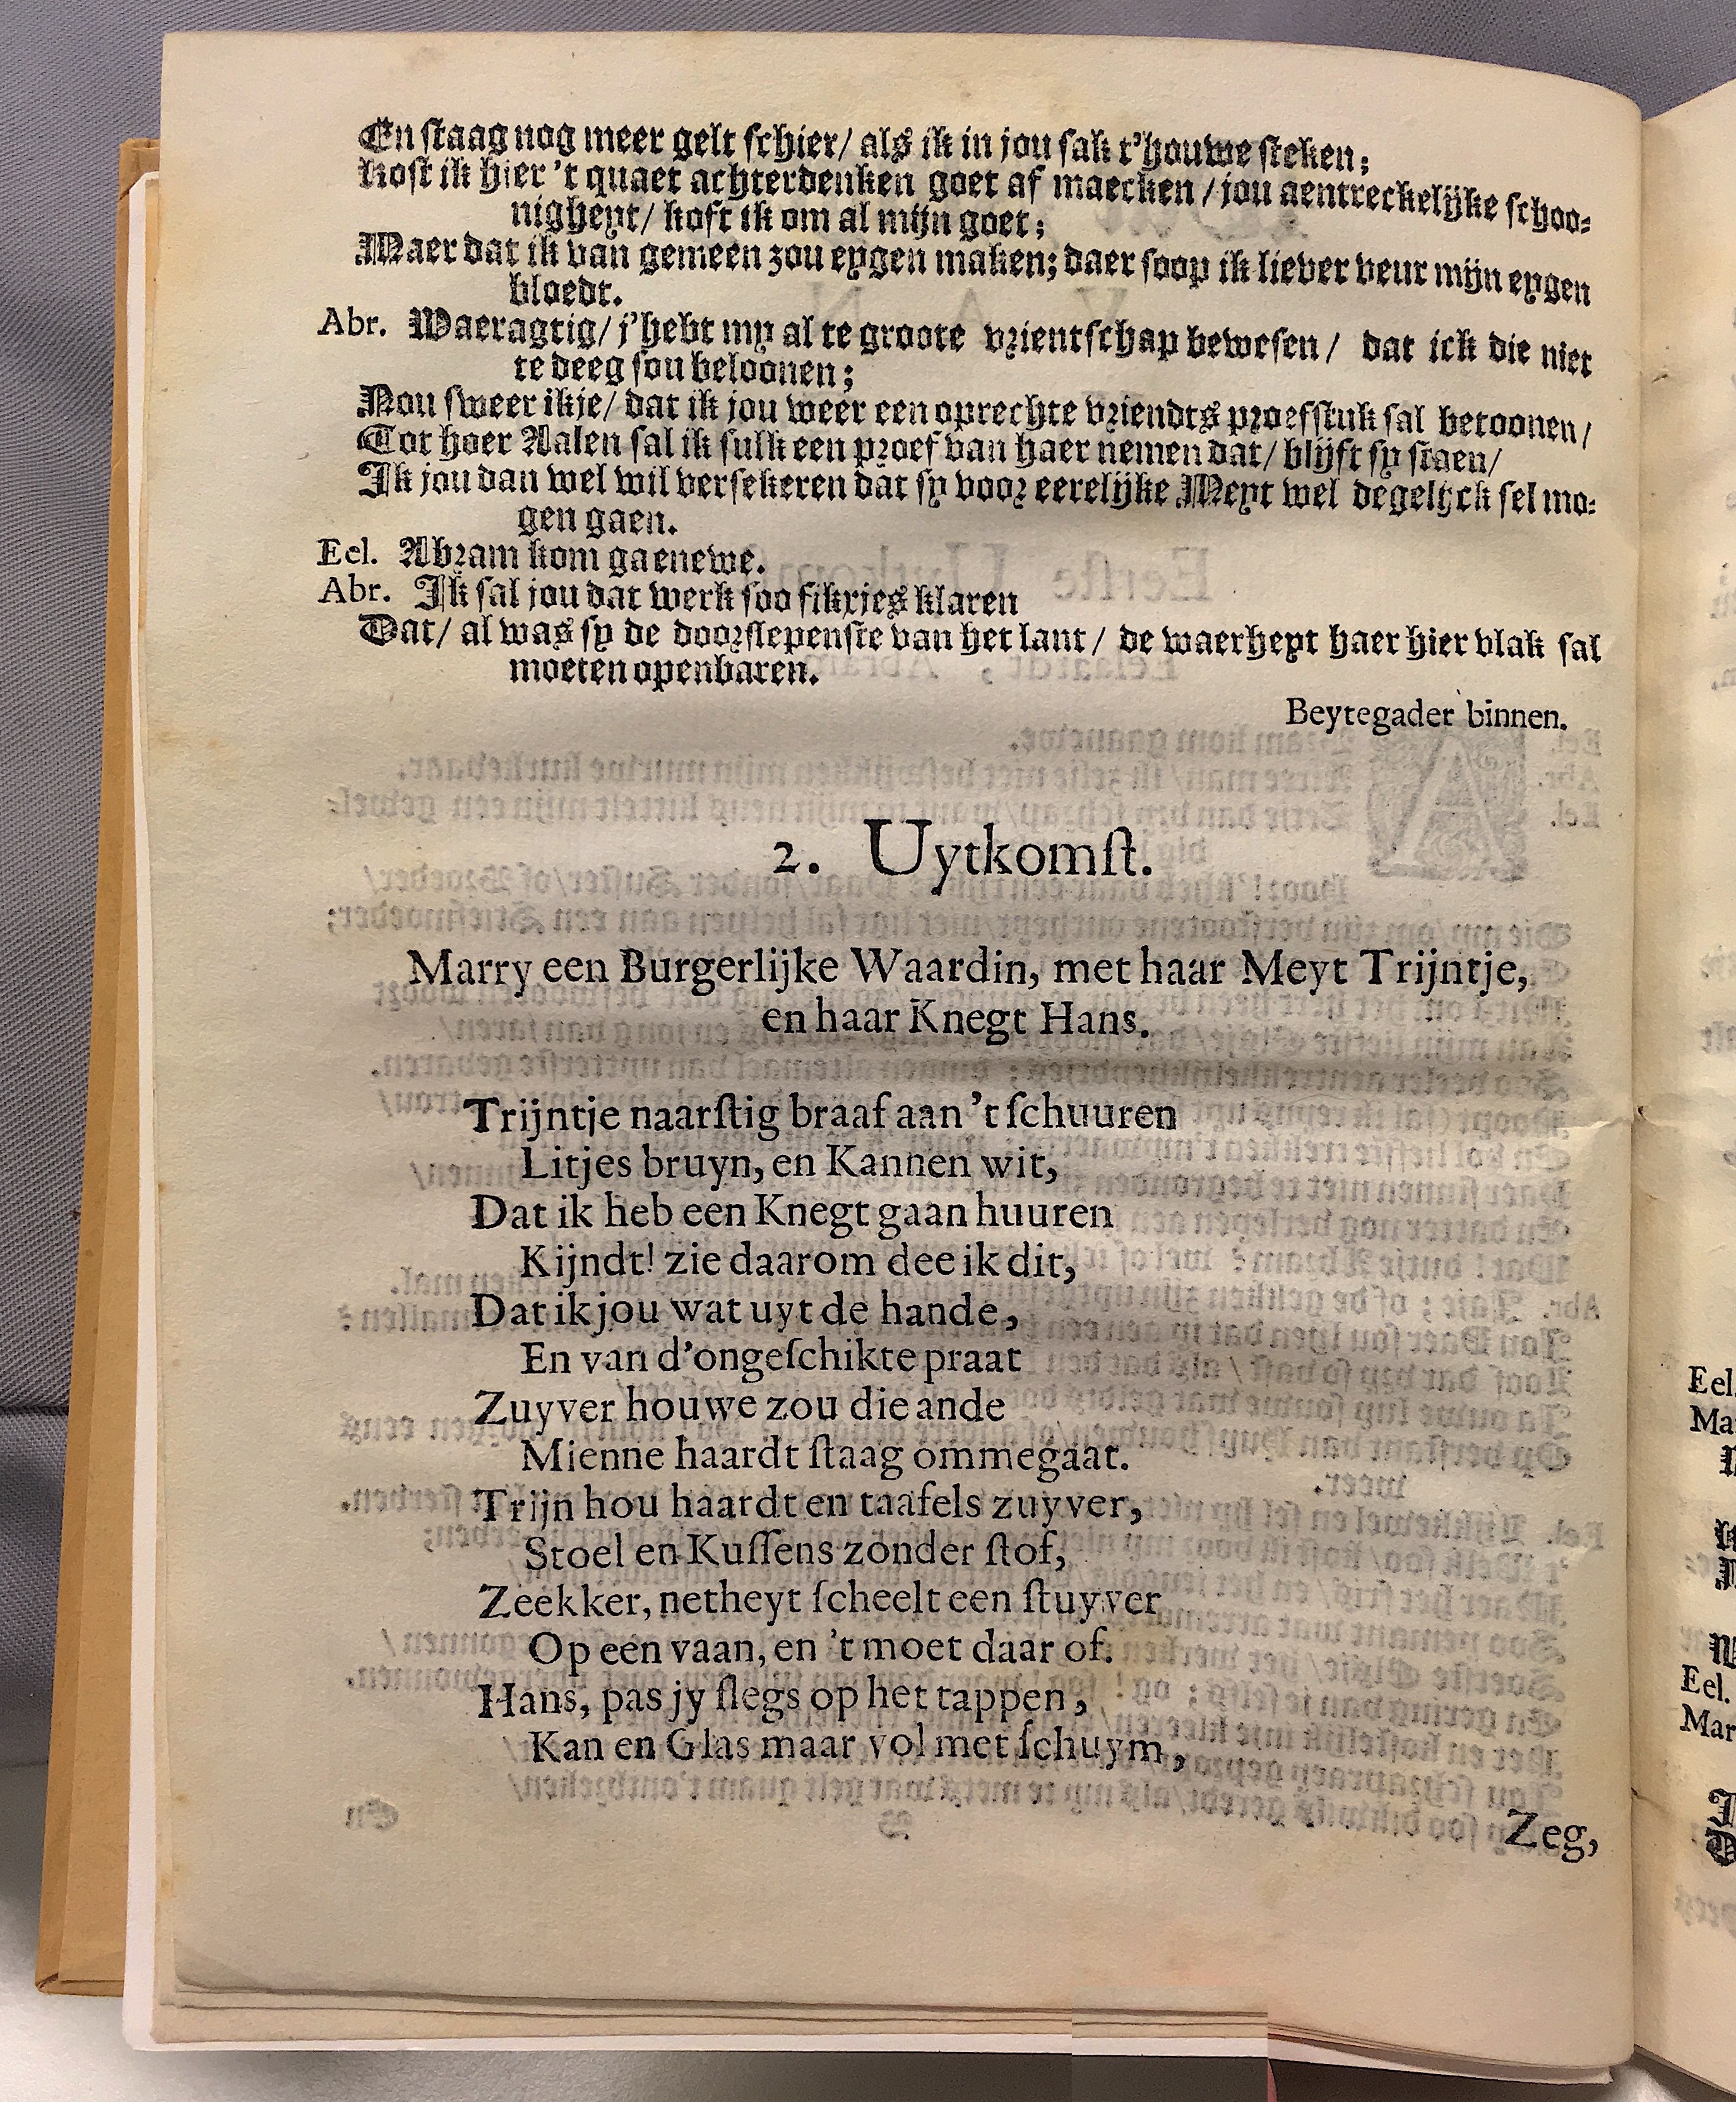 En staag nog meer gelt schier/ als ik in jou sak t'houwe steken;
kost ik hier 't quaet achterdenken goet af maecken / jou aentreckelijke schoo-
nigheyt/ koft ik om al mijn goet;
Maer dat ik van gemeen zou eygen maken; daer soop ik liever veur mijn eygen
bloedt.
Abr. Waeragtig/ j'hebt my al te groote vrientschap bewesen / dat ick die niet
te deeg sou beloonen;
Nou sweer ikje/ dat ik jou weer een oprechte vriendts proefstuk sal betoonen/
Tot hoer Aalen sal ik sulk een proef van haer nemen dat/ blijft sy staen/
Ik jou dan wel wil versekeren dat sy voor eerelijke Meyt wel degelijck sel mo-
gen gaen.
Eel. Abram kom gaenewe.
Abr. Ik sal jou dat werk soo fikxjes klaren
Dat/ al was sy de doorslepenste van het lant/ de waerheyt haer hier vlak sal
moeten openbaren.
Beytegader binnen.
2. Uytkomſt.
Marry een Burgerlijke Waardin, met haar Meyt Trijntje,
en haar Knegt Hans.
Trijntje naarſtig braaf aan 't ſchuuren
Litjes bruyn, en Kannen wit,
Dat ik heb een Knegt gaan huuren
Kijndt! zie daarom dee ik dit,
Dat ik jou wat uyt de hande,
En van d'ongeſchikte praat
Zuyver houwe zou die ande
Mienne haardt ſtaag ommegaat.
Trijn hou haardt en taafels zuyver,
Stoel en Kuſſens zonder ſtof,
Zeekker, netheyt ſcheelt een ſtuyver
Op een vaan, en 't moet daar of.
Hans, pas jy ſlegs op het tappen,
Kan en Glas maar vol met ſchuym,
Zeg,
Eel.
Eel.